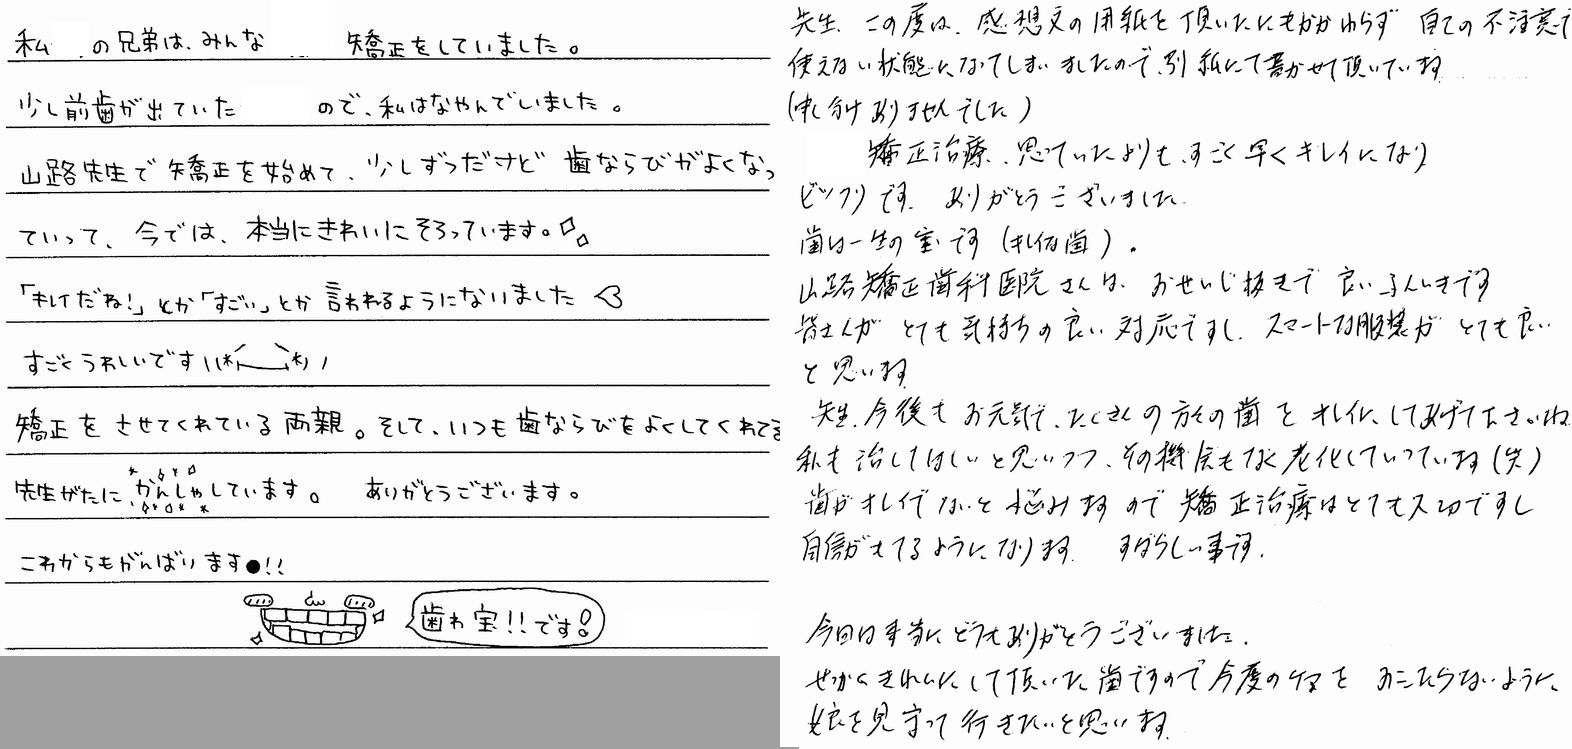 私 の兄弟は、みんな 矯正をしていました。
少し前歯が出ていた ので、私はなやんでいました。
山路先生で矯正を始めて、少しずつだけど 歯ならびがよくなっ
ていって、今では、本当にきれいにそろっています。
「キレイだね!」とか「すごい」とか言われるようになりました♡
すごくうれしいです
矯正をさせてくれている両親。そして、いつも歯ならびをよくしてくれてる
先生がたにかんしゃしています。 ありがとうございます。
これからもがんばります●!!
歯わ宝!!です!
先生、この度は、感想文の用紙を頂いたにもかかわらず 自分の不注意で
使えない状態になってしまいましたので、別紙にて書かせて頂いています
(申し分けありませんでした)
矯正治療、思っていたよりも、すごく早くキレイになり
ビックリです。ありがとうございました。
歯は一生の宝です(キレイな歯)。
山路矯正歯科医院さんは、おせいじ抜きで 良いふんいきです
皆さんが とても気持ちの良い対応ですし、スマートな服装が とても良い
と思います
先生、今後もお元気で、たくさんの方々の歯をキレイにしてあげて下さいね
私も治してほしいと思いつつ、その機会もなく老化していっています(笑)
歯がキレイでないと悩みますので矯正治療はとても大切ですし
自信がもてるようになります。 すばらしい事です。
今回は本当にどうもありがとうございました。
せっかくきれいにして頂いた歯ですので今度のケアを おこたらないように、
娘を見守って行きたいと思います。